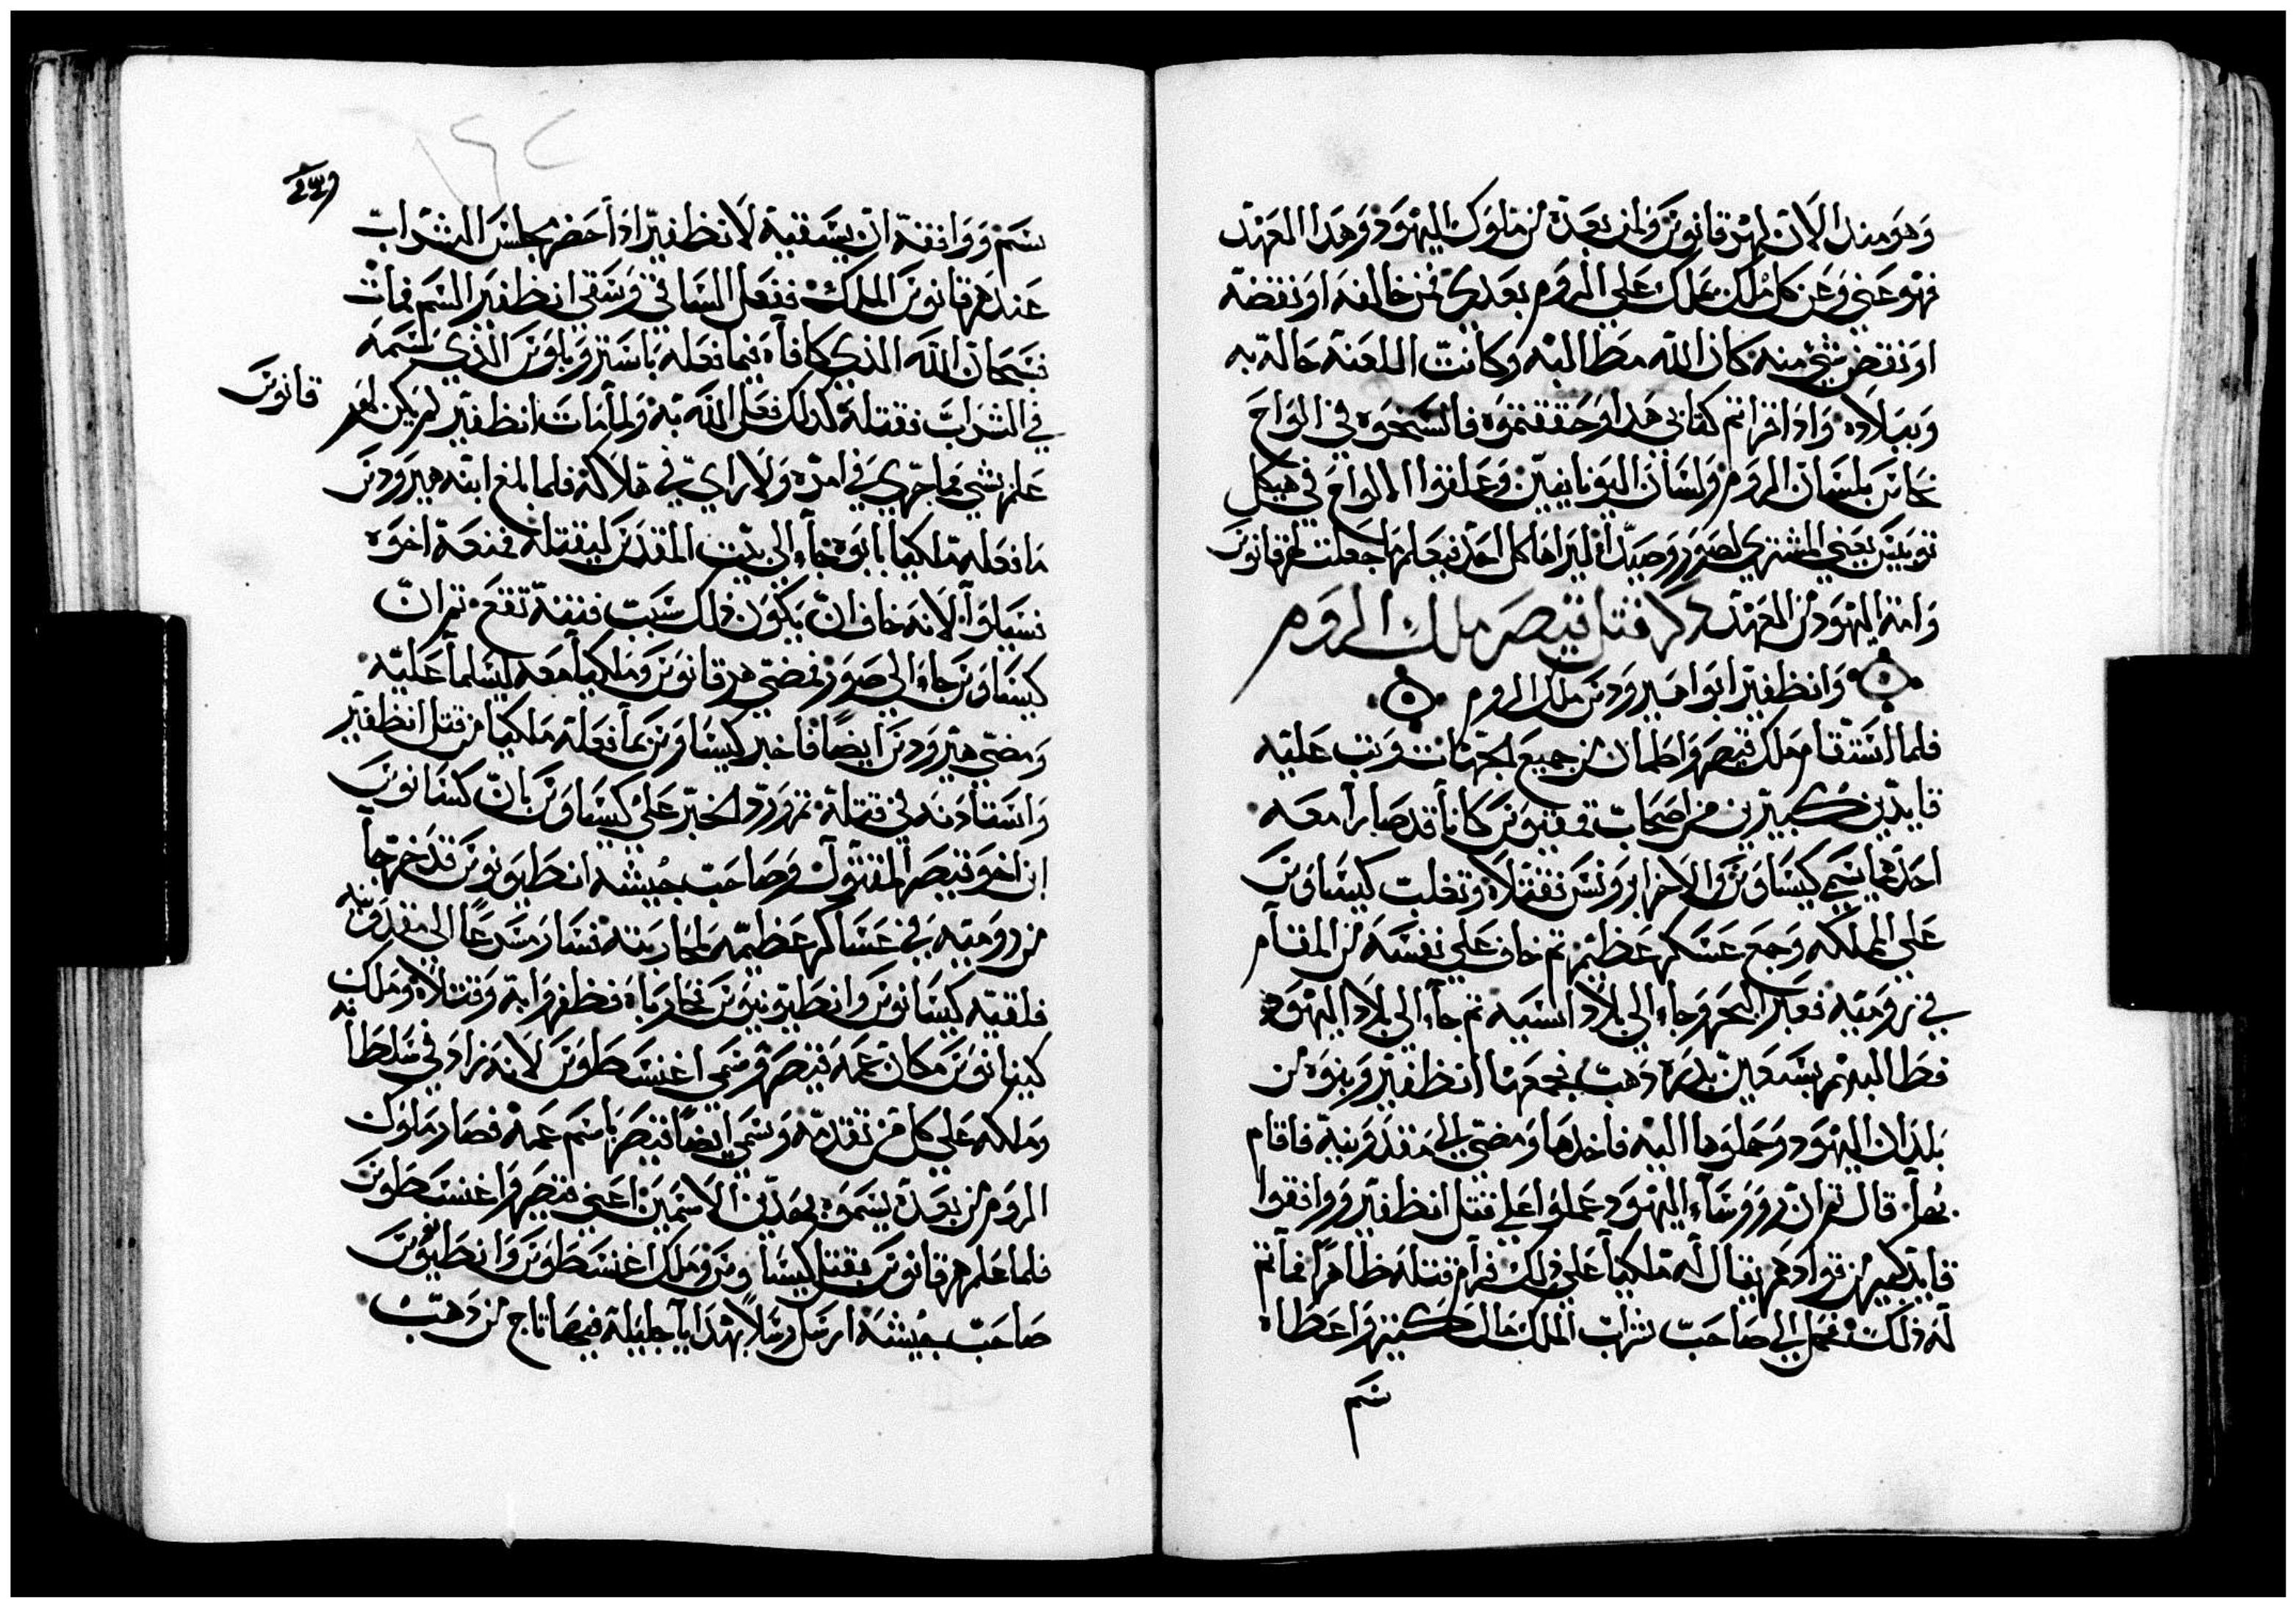 وهو منذ الان لهرقانوس ولمن بعده من ملوك اليهود وهدا العهد
فهو عني وعن كل ملك يملك على الروم بعدي فمن خالفه او نقضه
او نقض شي منه كان الله مطالبه وكانت اللعنة حالة به
وببلاده واذا قراتم كتابي هدا وحققتموه فانسخوه في الواح
نحاس بلسان الروم ولسان اليونانيين وعلقوا الالواح في هيكل
يعني المشتري لصور وصيدا ليراها كل احد فيعلم ما جعلت لهرقانوس
وامة اليهود من العهد ذكر قتل قيصر ملك الروم
وانظفير ابوا هيرودس ملك الروم
فلما استقام ملك قيصر واطمان من جميع الجهات وثب عليه
قايدين كبيرين من اصحاب كانا قد صارا معه
احدهما يسمى كيساوس والاخر ابرونس فقتلاه وتغلب كيساوس
على المملكه وجمع عسكر عظيم ثم خاف على نفسه من المقام
في روميه فعبر البحر وجاء الى بلاد اسيه ثم جاء الى بلاد اليهود
فطالبهم بسبعين بدره ذهب فجمعها انظفير وبنوه من
بلدان اليهود وحملوها اليه فاخدها ومضى الى مقدونية فاقام
بها قال ثم ان رووساء اليهود عملوا على قتل انظفير ووافقوا
قايد كبير من قوادهم يقال له ملكيا على ذلك فرام قتله ظاهرا فما تم
له ذلك فحمل الى صاحب شراب الملك مال كثير واعطاه
سم
سم ووافقه ان يسقيه لانظفير اذا حضر مجلس الشراب
عند هرقانوس الملك ففعل الساقي وسقى انظفير السم فمات
فسبحان الله الذي كافاه فيما فعله باسترو بلوس الذي سمه
في الشراب فقتله كدلك فعل الله به ولما مات انظفير لم يكن لهر
قانوس
علم بشي مما جرى في امره ولا راي في هلاكه فلما بلغ ابنه هيرودس
ما فعله ملكيا بابوه جاء الى بيت المقدس ليقتله فمنعه اخوه
فسيلوا لانه خاف ان يكون ذلك سبب فتنة تقع ثم ان
كيساوس جاء الى صور فمضى هرقانوس وملكيا معه ليسلما عليه
ومضى هيرودس ايضا فاخبر كيساوس بما فعله ملكيا من قتل انظفير
واستاذنه في قتله ثم ورد الخبر على كيساوس بان كسانوس
ابن اخو قيصر المقتول وصاحب جيشه انطيونوس قد خرجا
من روميه في عساكر عظيمه لمحاربته فسار مسرعا الى مقدونيه
فلقيه كيسانوس وانطيونيوس فحارباه فظفروا به وقتلاه وملك
كينانوس مكان عمه قيصر وسمى اغنسطوس لانه زاد في سلطانه
وملكه على كل من تقدمه وسمى ايضا قيصر باسم عمه فصار ملوك
الروم من بعده يسموه بهدين الاسمين اعني قيصر واغنسطوس
فلما علم هرقانوس بقتل كيساوس وملك اغنسطوس وانطيونوس
صاحب جيشه ارسل رسلا بهدايا جليلة فيها تاج من ذهب